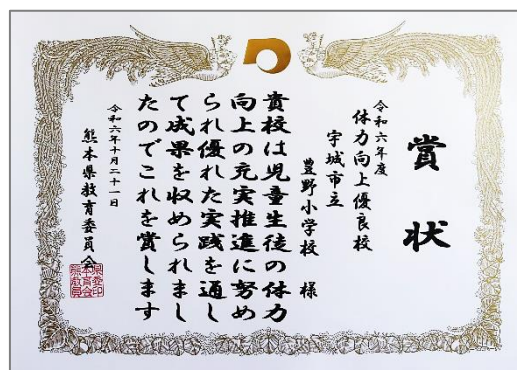 賞状
令和六年度
体力向上優良校
宇城市立
豊野小学校 様
貴校は児童生徒の体力
向上の充実推進に努め
られ優れた実践を通し
て成果を収められまし
たのでこれを賞します
令和六年十月二十一日
熊本県教育委員会